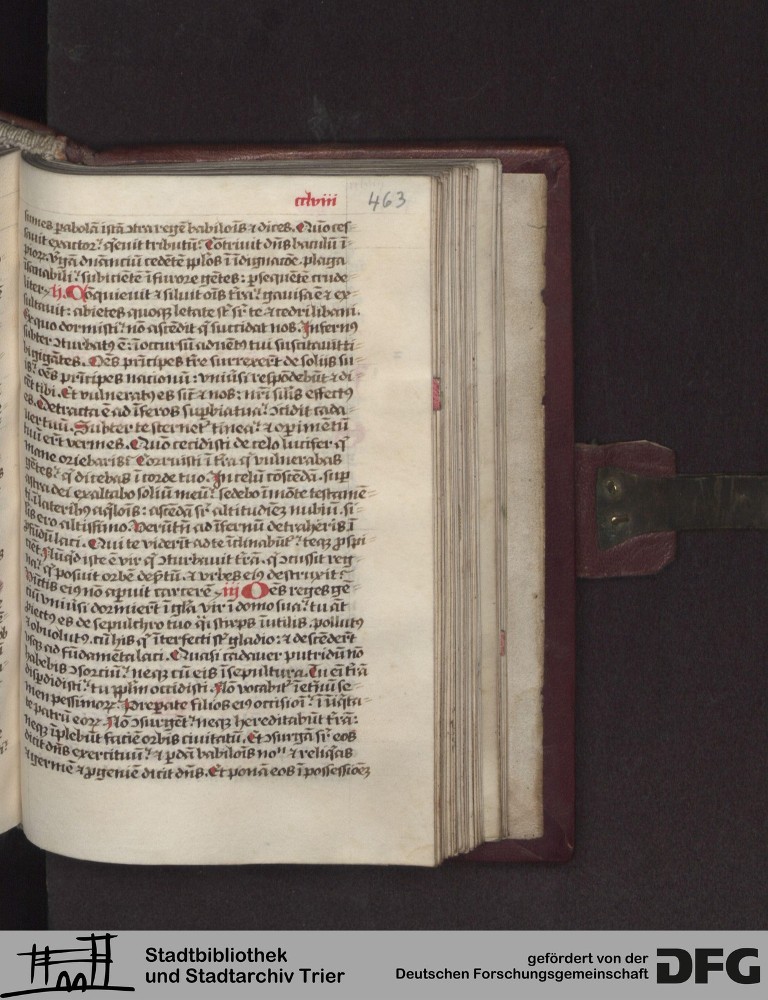 cclviii 463
sumes parabolā istā ↄtra regē babilois ⁊ dices. Quō ces-
sauit exactor: q̄euit tributū: Cōtriuit dn̄s baculū ī-
pioꝝ. v̓gā dn̄anciū cedētē pp̄los ī īdignacōe. plaga
īsanabili: subiciētē ī furore gētes: ꝑsequētē crude
liter. ij. Cōquieuit ⁊ siluit oīs tr̄a: gauisa ē ⁊ ex-
sultauit: abietes quoqꝫ letate st̄ sr̄ te ⁊ cedri libani.
Ex quo dormisti: nō ascēdit q̄ succidat nos. Infernꝰ
subter ↄturbatꝰ ē: ī occursū aduētꝰ tui suscitauit ti-
bi gigātes. Oēs prīcipes tr̄e surrexert̄ de solijs su-
is: oēs prīcipes nacionū: vniūsi respōdebūt ⁊ di-
cēt tibi. Et vulneratꝰ es sic̄ ⁊ nos: nr̄i silīs effectꝰ
es. Detracta ē ad īferos suꝑbia tua: ↄcidit cada-
uer tuū. Subter te sternet̄ tinea: ⁊ oꝑimētū
tuū ert̄ vermes. Quō cecidisti de celo lucifer q̄
mane oriebaris: Corruisti ī tr̄a q̄ vulnerabas
gētes: q̄ dicebas ī corde tuo. In celū cōscēdā. suꝑ
astra dei exaltabo soliū meū: sedebo ī mōte testamē-
ti ī lateribꝰ aq̄lois: ascēdā sr̄ altitudieꝫ nubiū. si-
lis ero altissimo. Verūtn̄ ad īfernū detraheris ī
ꝓfūdū laci. Qui te viderīt ad te īclinabūt̄: teqꝫ ꝓspi-
ciēt. Nūqd̄ iste ē vir q̄ ↄturbauit tr̄ā. q̄ ↄcussit reg-
na: q̄ posuit orbē deꝑtū. ⁊ vrbes eiꝰ destruxit:
Vīctis eiꝰ nō aꝑuit carcerē. iij Oēs reges gē-
ciū vniūsi dormiert̄ ī gl̄a vir ī domo sua: tu āt
ꝓiectꝰ es de sepulchro tuo q̄si stirps īutilis. pollutꝰ
⁊ obuolutꝰ. cū his q̄ īterfecti st̄ gladio: ⁊ descēdert̄
vsqꝫ ad fūdamēta laci. Quasi cadauer putridū nō
habebis ↄsorciū: neqꝫ cū eis ī sepultura. Tu eī tr̄ā
dispdidisti: tu pp̄lm occidisti. Nō vocabit̄ ī etn̄ū se-
men pessimoꝝ. Preꝑate filios eiꝰ occisioī: ī iīqta-
te patrū eoꝝ. Nō ↄsurgēt: neqꝫ hereditabūt tr̄ā:
neqꝫ īplebūt faciē orbis ciuitatū. Et ↄsurgā sr̄ eos
dicit dn̄s exercituū: ⁊ ꝑdā babilois noᵐ ⁊ reliq̄as
⁊ germē ⁊ ꝓgeniē dicit dn̄s. Et ponā eos ī possessioēꝫ
Stadtbibliothek
und Stadtarchiv Trier
gefördert von der
Deutschen Forschungsgemeinschaft
DFG